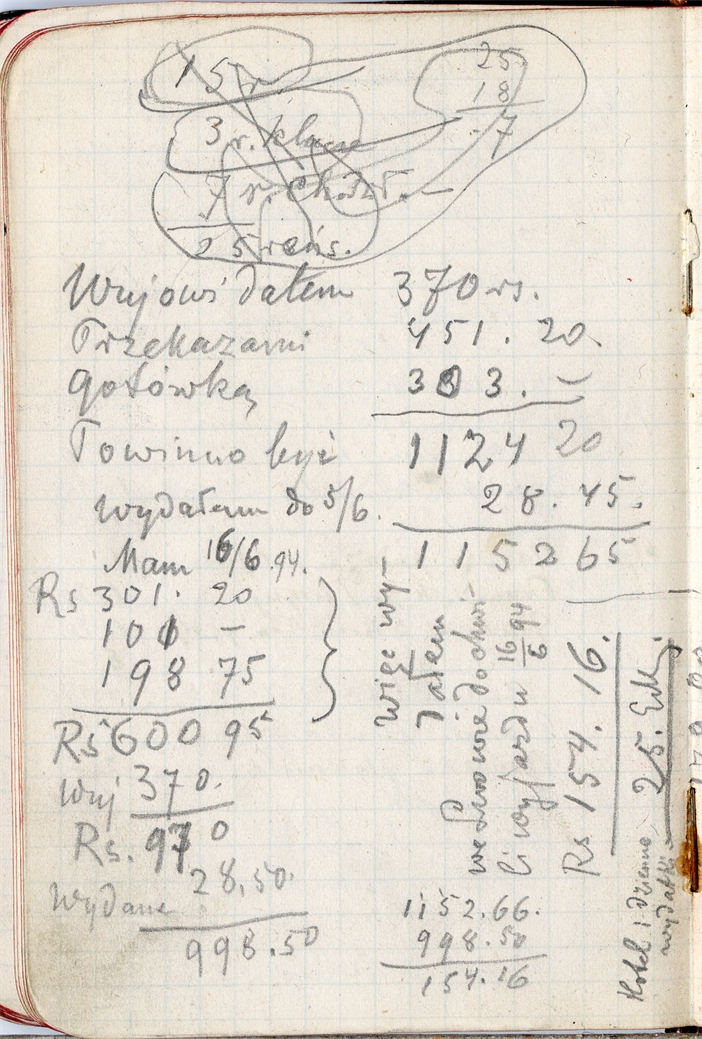 15 r
3 r. klasse
7 r.
25 reńs.
25
18
7
Wujowi dałem 370 rs.
Przekazami 451. 20.
gotówką 303. —
Powinno być 1124 20
wydałem do 5/6. 28. 45.
Mam 16/6 94. 1152 65
Rs 301. 20
101 —
198 75
Rs 600 95
Wuj 370.
Rs. 970
Wydane 28,50.
998.50
więc wy-
dałem
we Lwowie do chwi-
li wyjazdu 16/6 94
Rs 154. 16.
1152.66.
998.50
154.16
Hotel i dzienne
wydatki